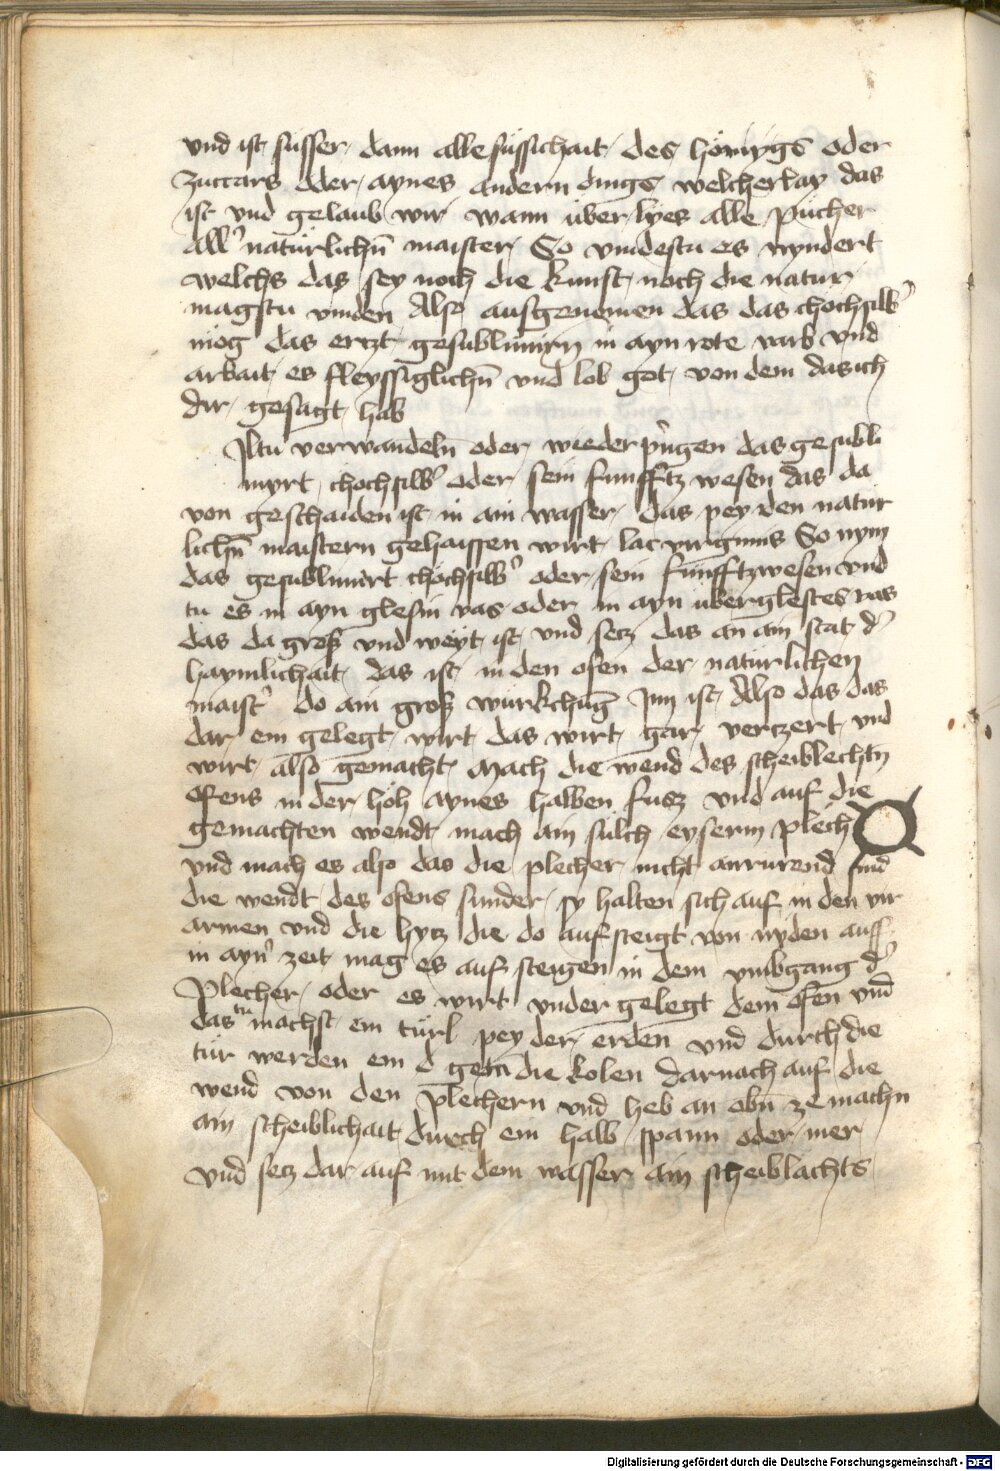 vnd ist süsser dann alle süssichait des hönigs oder
zuccars oder aynes andern dings welcherlay das
ist vnd gelaub wir wann über lyes alle pücher
all' natürlichñ maister So vindestu es nyndert
welchs das sey noch die kunst noch die natur
magstu vinden Also ausgenomen das das chochsilb'
mög das ertzt gesublimirn in ayn rote varb vnd
arbait es fleyssiglichñ vnd lob got von dem das ich
dir gesagt hab
Wiltu verwandelñ oder wieder pringen das gesubli
myrt chochsilb' oder sein funfftz wesen das da
von geschaiden ist in ain wasser das pey den natür
lichñ maistern gehaissen wirt lac virginis So nym
das gesublimirt chochsilb' oder sein funfftzwesen vnd
tu es in ayn glesin vas oder in ayn überglestes vas
das da groß vnd weyt ist vnd secz das an ain stat d'
haymlichait das ist in den ofen der natürlichen
maist' do ain groß würkchūg Inn ist Also das das
dar ein gelegt wirt das wirt gar vertzert vnd
wirt also gemacht Mach die wend des scheiblechtn
ofens in der höh aynes halben fusz vnd auf die
gemachten wendt mach ain sülch eyserin plech
vnd mach es also das die plecher nicht anrürend sind
die wendt des ofens sunder sy halten sich auf in den vir
armen vnd die hytz die do aufsteigt von nyden auff
in ayn' zeit mag es auf steigen in dem vmbgang d'
Plecher oder es wirt vnder gelegt dem ofen vnd
das tu machst ein türl pey der erden vnd durch die
tür werden ein getan die kolen darnach auf die
wend von den plechern vnd heb an obñ ze machn
ain scheiblichait durch ein halb spann oder mer
vnd secz dar auf mit dem wasser ain scheiblachts
Digitalisierung gefördert durch die Deutsche Forschungsgemeinschaft - DFG